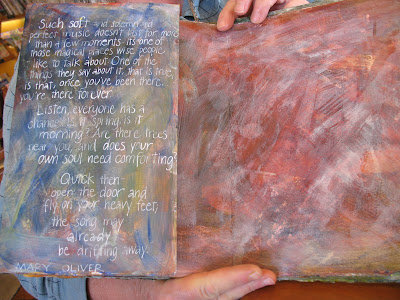 Such soft and solemn and
perfect music doesn't last for more
than a few moments. It's one of
those magical places wise people
like to talk about. One of the
things they say about it, that is true,
is that, once you've been there,
you're there forever.
Listen, everyone has a
chance. Is it spring, is it
morning? Are there trees
near you, and does your
own soul need comforting?
Quick, then-
open the door and
fly on your heavy feet;
the song may
already
be drifting away.
MARY OLIVER